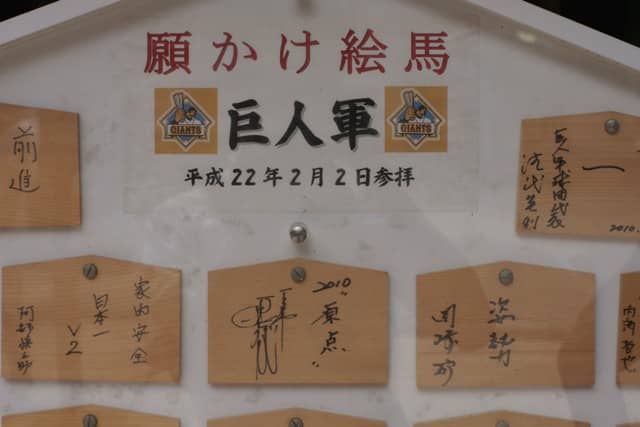 願かけ絵馬
GIANTS 巨人軍 GIANTS
平成22年2月2日参拝
前進
巨人軍球団代表
清武英利
一
2010.
家内安全
日本一
V2
阿部慎之助
2010
"原点"
姿勢
内海哲也